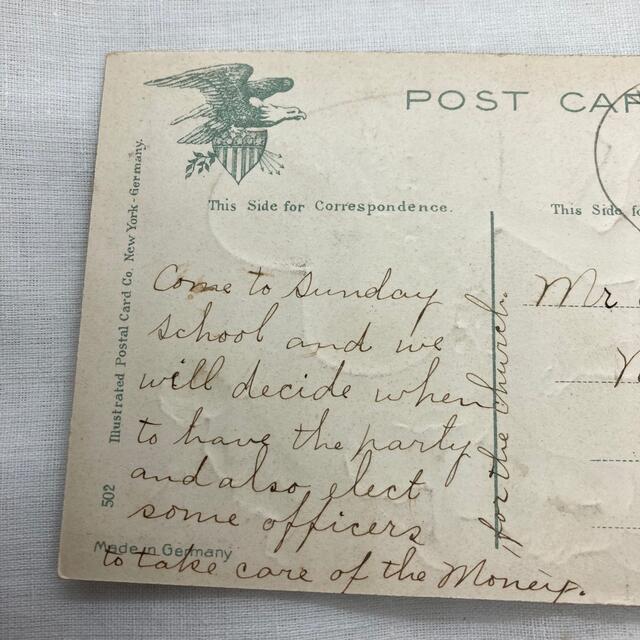 POST CAR
This Side for Correspondence.
This Side fo
Illustrated Postal Card Co. New York-Germany.
502
Come to Sunday
school and we
will decide when
to have the party
and also elect
some officers
to take care of the Money.
for the church.
Made in Germany
Mr